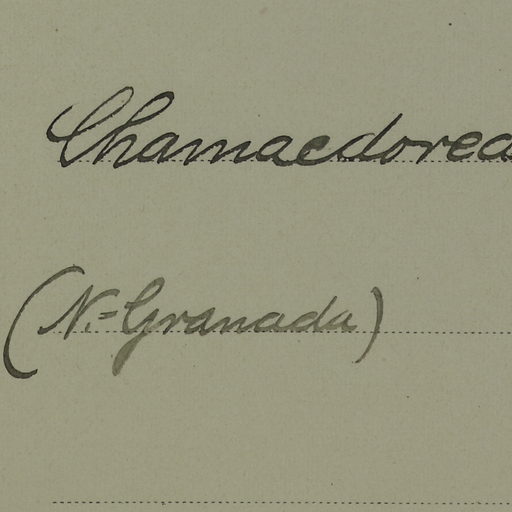 Chamaedorea
(N.=Granada)